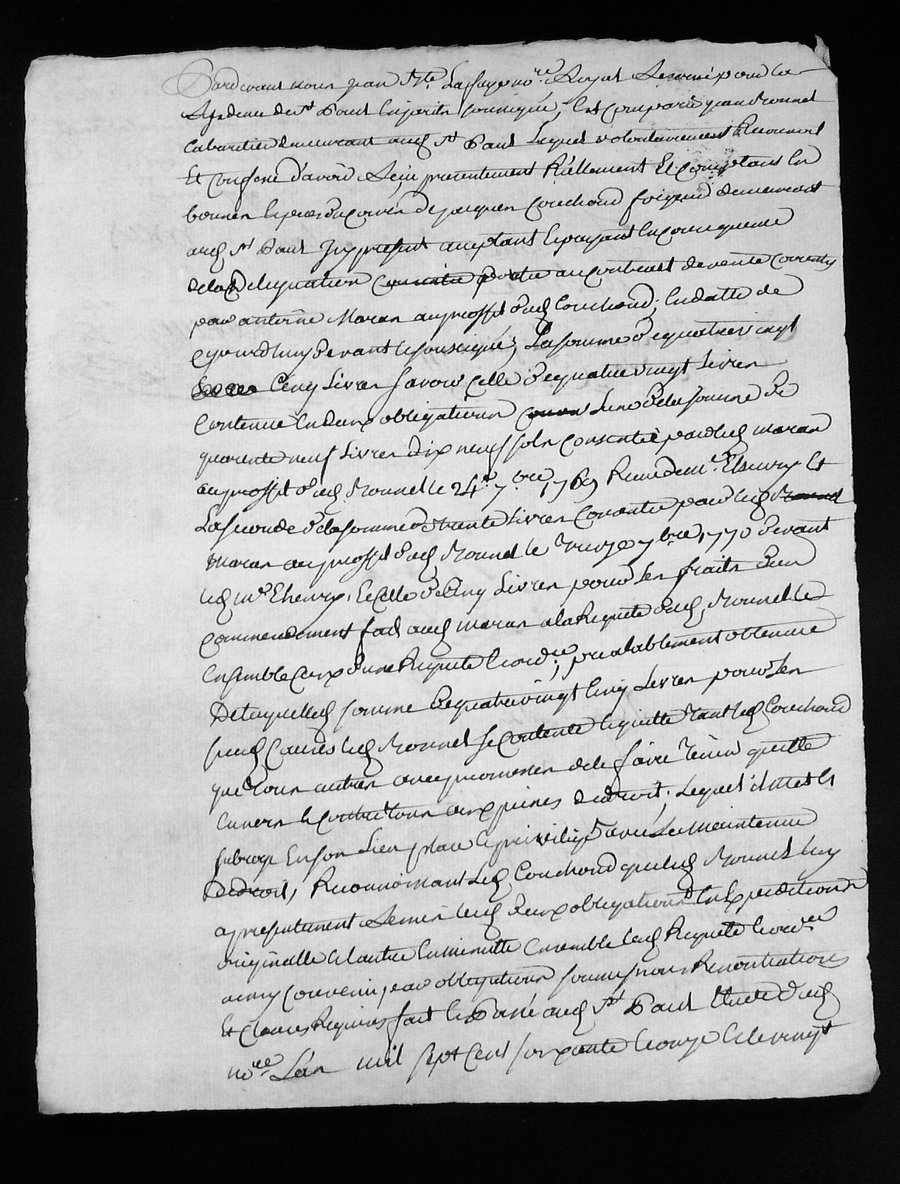 Pardevant nous Jean Bte Lafaye nore Royal Reservé pour la
St Paul Enjarets soussigné, Est comparu jean Monnel
Cabaretier demeurant audt St Paul Lequel volontairement Reconnoit
Et confesse d'avoir Reçu presentement Réellement Et comptant En
bonnes Especes de cours de jacques Couchaud demeurant
audt St Paul Icy present acceptant Et payant En consequence
de la delegation portée au contract de vente Consenty
par antoine Maran au proffit dudt Couchaud, En datte de
ce jourd'huy devant le soussigné, La somme de quatre vingt
Cinq Livres savoir celle de quatre vingt Livres
Contenue En deux obligations L'une de la somme de
quarente neuf Livres dix neuf sols Consentie par ledt Maran
au proffit dudt Monnel le 24e 7bre 1769 Reçue de me Ehenry Et
La seconde de la somme de trente Livres Consentie par ledt
Maran au proffit dudt Monnel le 7bre 1770 devant
ledt me Ehenry, Et celle de Cinq Livres pour les fraits d'un
commendement fait audt Maran a la Requete dudt Monnel Et
Ensemble Ceux d'une Requete préalablement obtenue
De laquelle somme de quatre vingt Cinq Livres pour les
susd Causes ledt Monnel se Contente Et quitte tant ledt Couchaud
que tous autres avec promesses de le faire tenir quitte
Envers Et contre tous aux peines de droit, Lequel il met Et
subroge En son Lieu place Et privilege avec La Maintenue
De droit, Reconnoissant ledt Couchaud que ledt Monnel luy
a presentement Remis lesd deux obligations En Expedition
originalle Et l'autre En minutte Ensemble lad Requete
ainsy Convenu par obligations soumissions Renontiations
Et Clauses Requises fait Et Passé audt St Paul Etude dudt
nore L'an mil sept Cent soixante Et onze Et le vingt